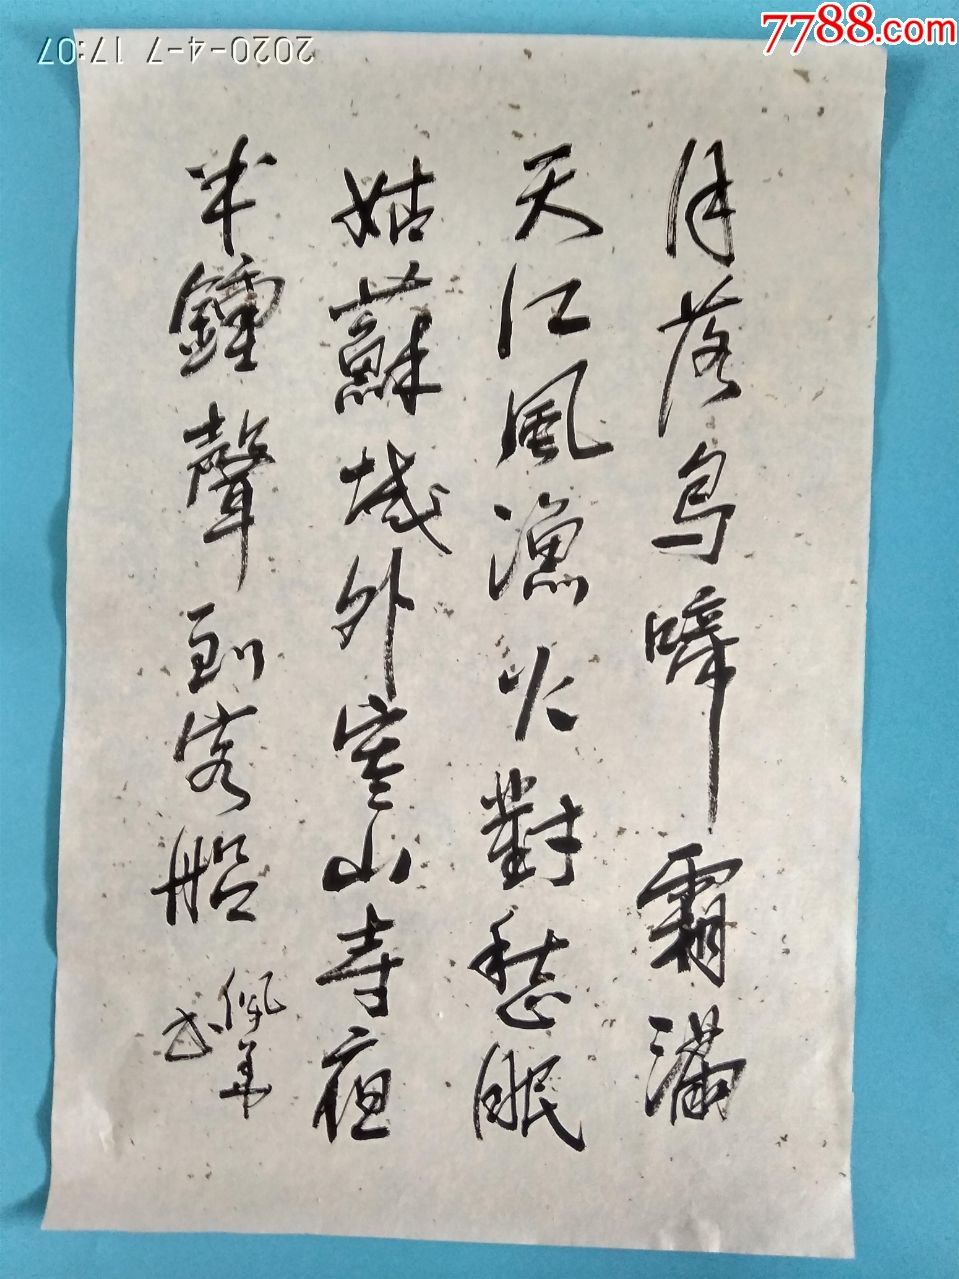 7788.com
2020-4-7 17:07
月落烏啼霜滿
天江風漁火對愁眠
姑蘇城外寒山寺夜
半鍾聲到客船
佩華
书